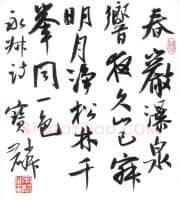 春巖瀑泉
響夜久山已寂
明月淨松林千
峯同一色
永叔詩 寶